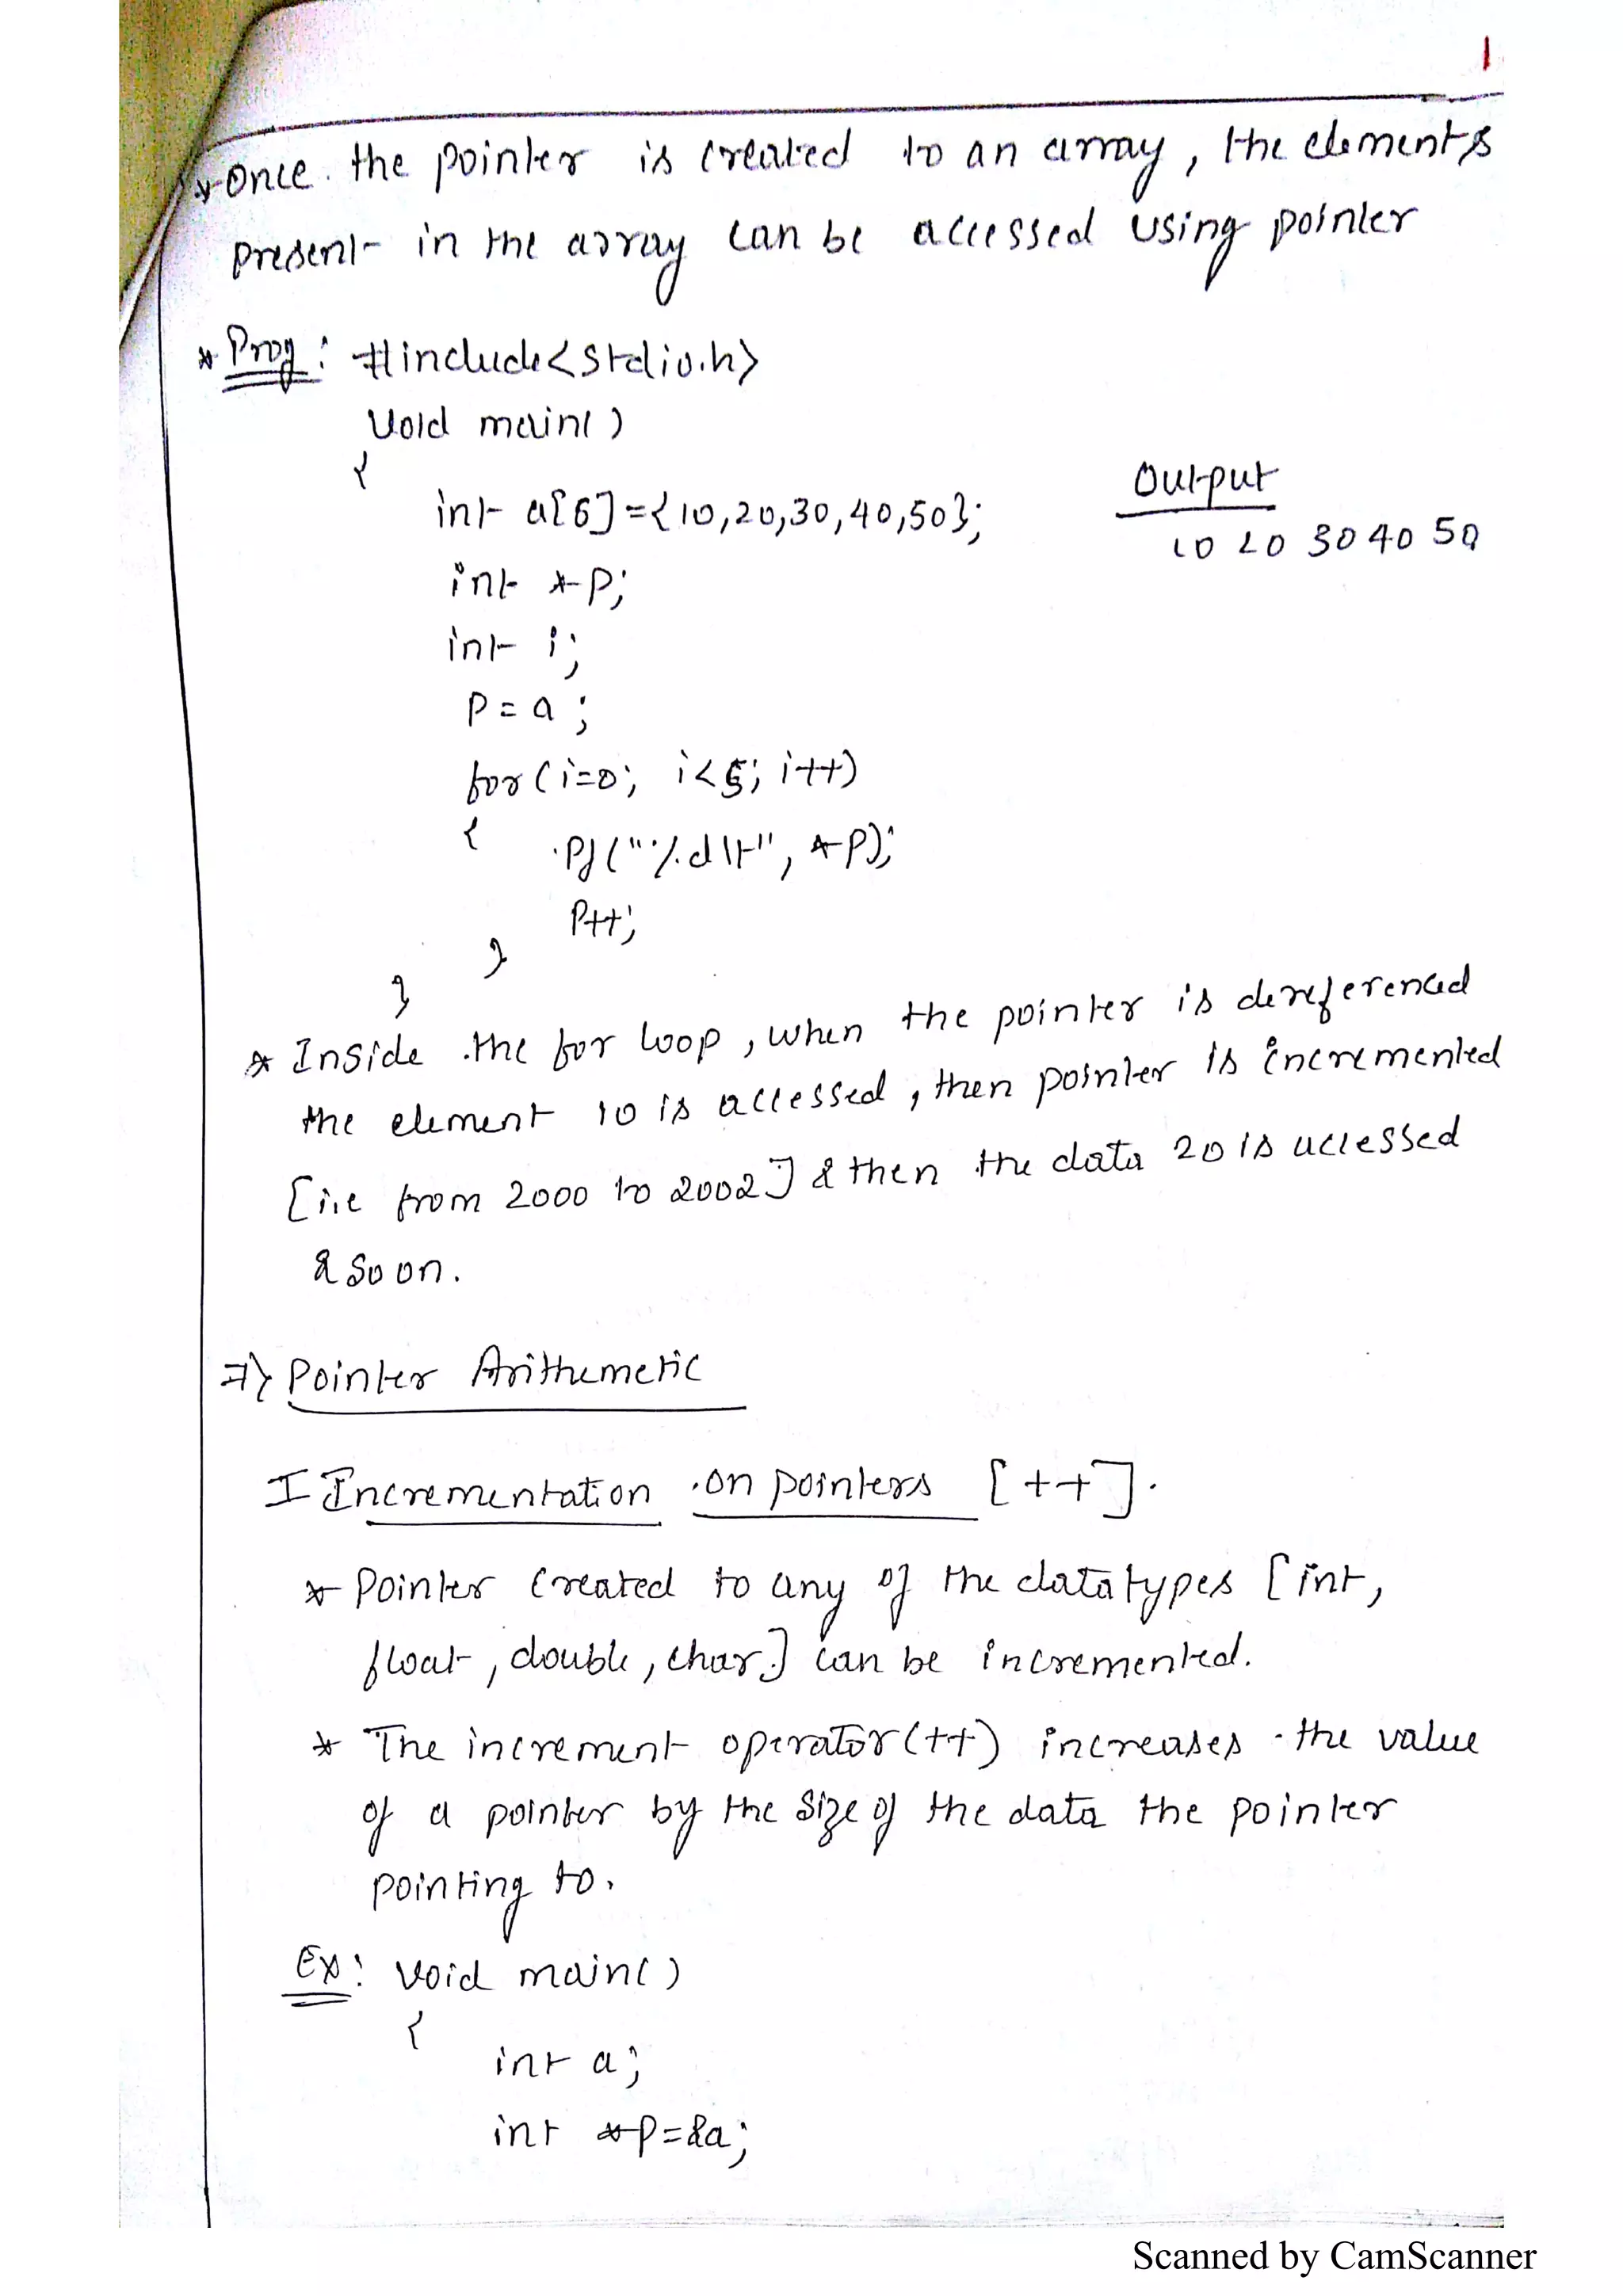 1
* Once the pointer is created to an array, the elements
present in the array can be accessed using pointer
* Prog: #include<stdio.h>
Void main()
{
int a[5]={10,20,30,40,50};
Output
10 20 30 40 50
int *p;
int i;
P=a;
for(i=0; i<5; i++)
{
Pf("%d\t", *P);
P++;
}
}
* Inside the for loop, when the pointer is dereferenced
the element 10 is accessed, then pointer is incremented
[i.e from 2000 to 2002] & then the data 20 is accessed
& so on.
=> Pointer Arithemetic
I Incrementation on pointers [++].
* Pointer created to any of the datatypes [int,
float, double, char.] can be incremented.
* The increment operator(++) increases the value
of a pointer by the size of the data the pointer
pointing to.
Ex: Void main()
{
int a;
int *p=&a;
Scanned by CamScanner